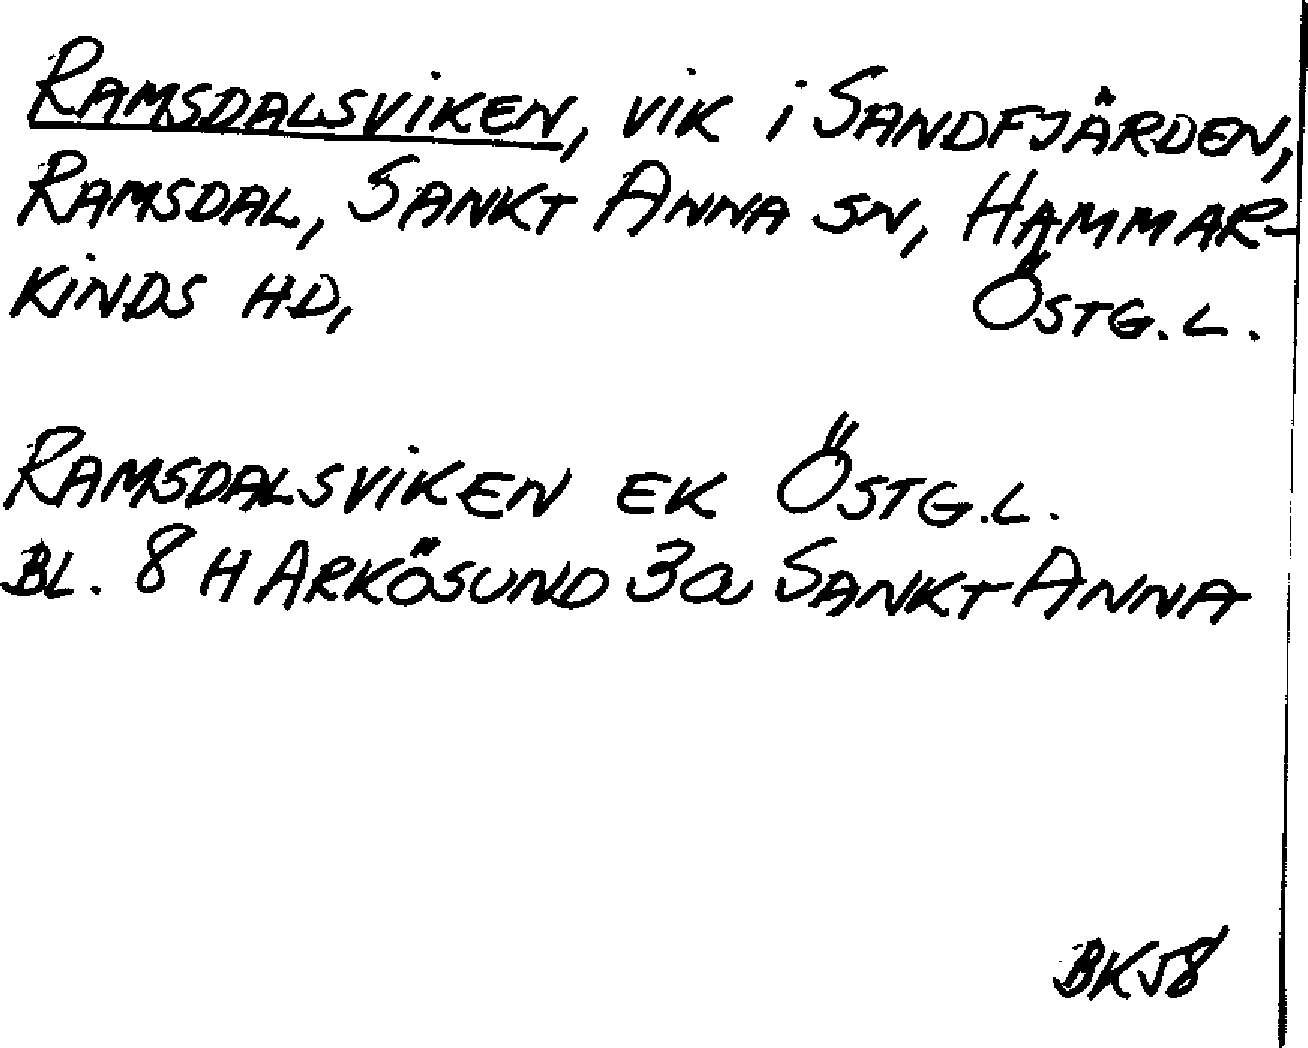 RAMSDALSVIKEN, VIK i SANDFJÄRDEN,
RAMSDAL, SANKT ANNA SN, HAMMAR-
KINDS HD, ÖSTG.L.
RAMSDALSVIKEN EK ÖSTG.L.
BL. 8 H ARKÖSUND 3a SANKT ANNA
BK58